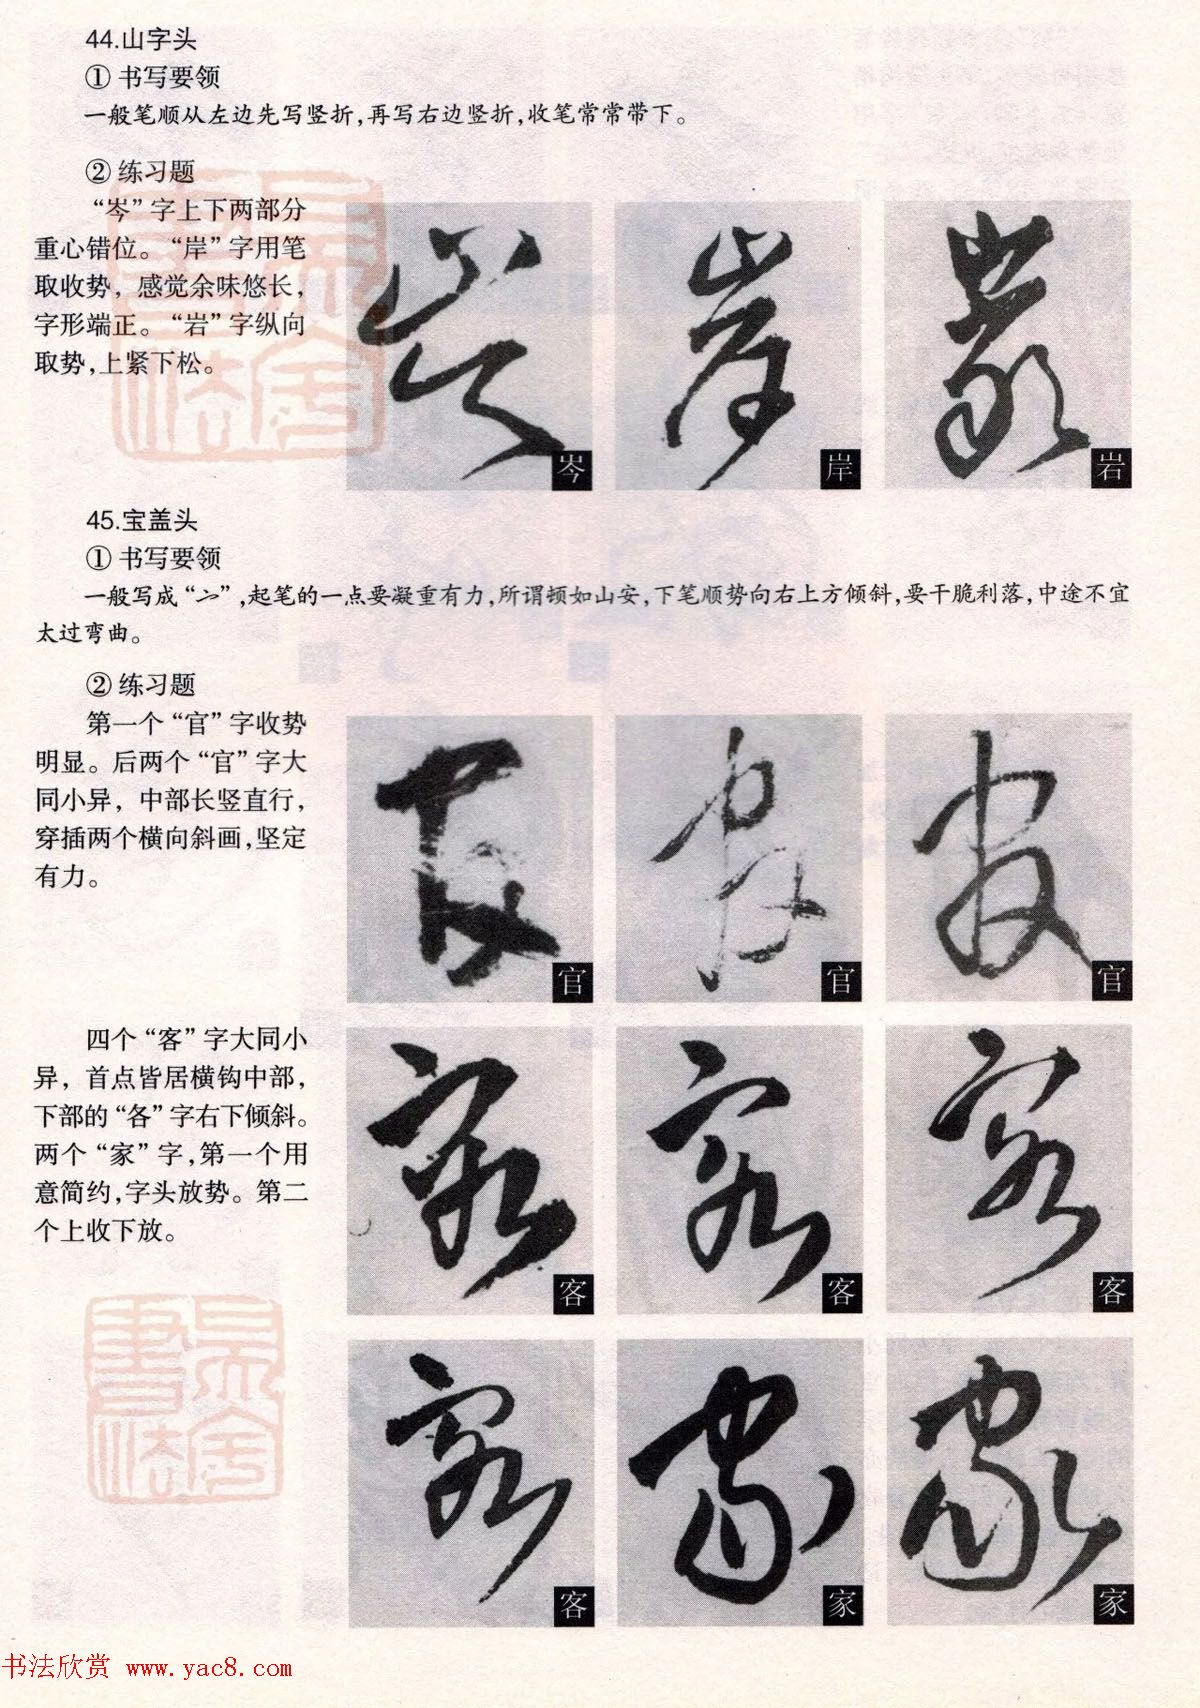 44.山字头
① 书写要领
一般笔顺从左边先写竖折,再写右边竖折,收笔常常带下。
② 练习题
“岑”字上下两部分
重心错位。“岸”字用笔
取收势，感觉余味悠长，
字形端正。“岩”字纵向
取势,上紧下松。
岑 岸 岩
45.宝盖头
① 书写要领
一般写成“⺀”,起笔的一点要凝重有力,所谓顿如山安,下笔顺势向右上方倾斜,要干脆利落,中途不宜
太过弯曲。
② 练习题
第一个“官”字收势
明显。后两个“官”字大
同小异，中部长竖直行，
穿插两个横向斜画,坚定
有力。
官 官 官
四个“客”字大同小
异，首点皆居横钩中部，
下部的“各”字右下倾斜。
两个“家”字,第一个用
意简约,字头放势。第二
个上收下放。
客 客 客
客 家 家
书法欣赏 www.yac8.com